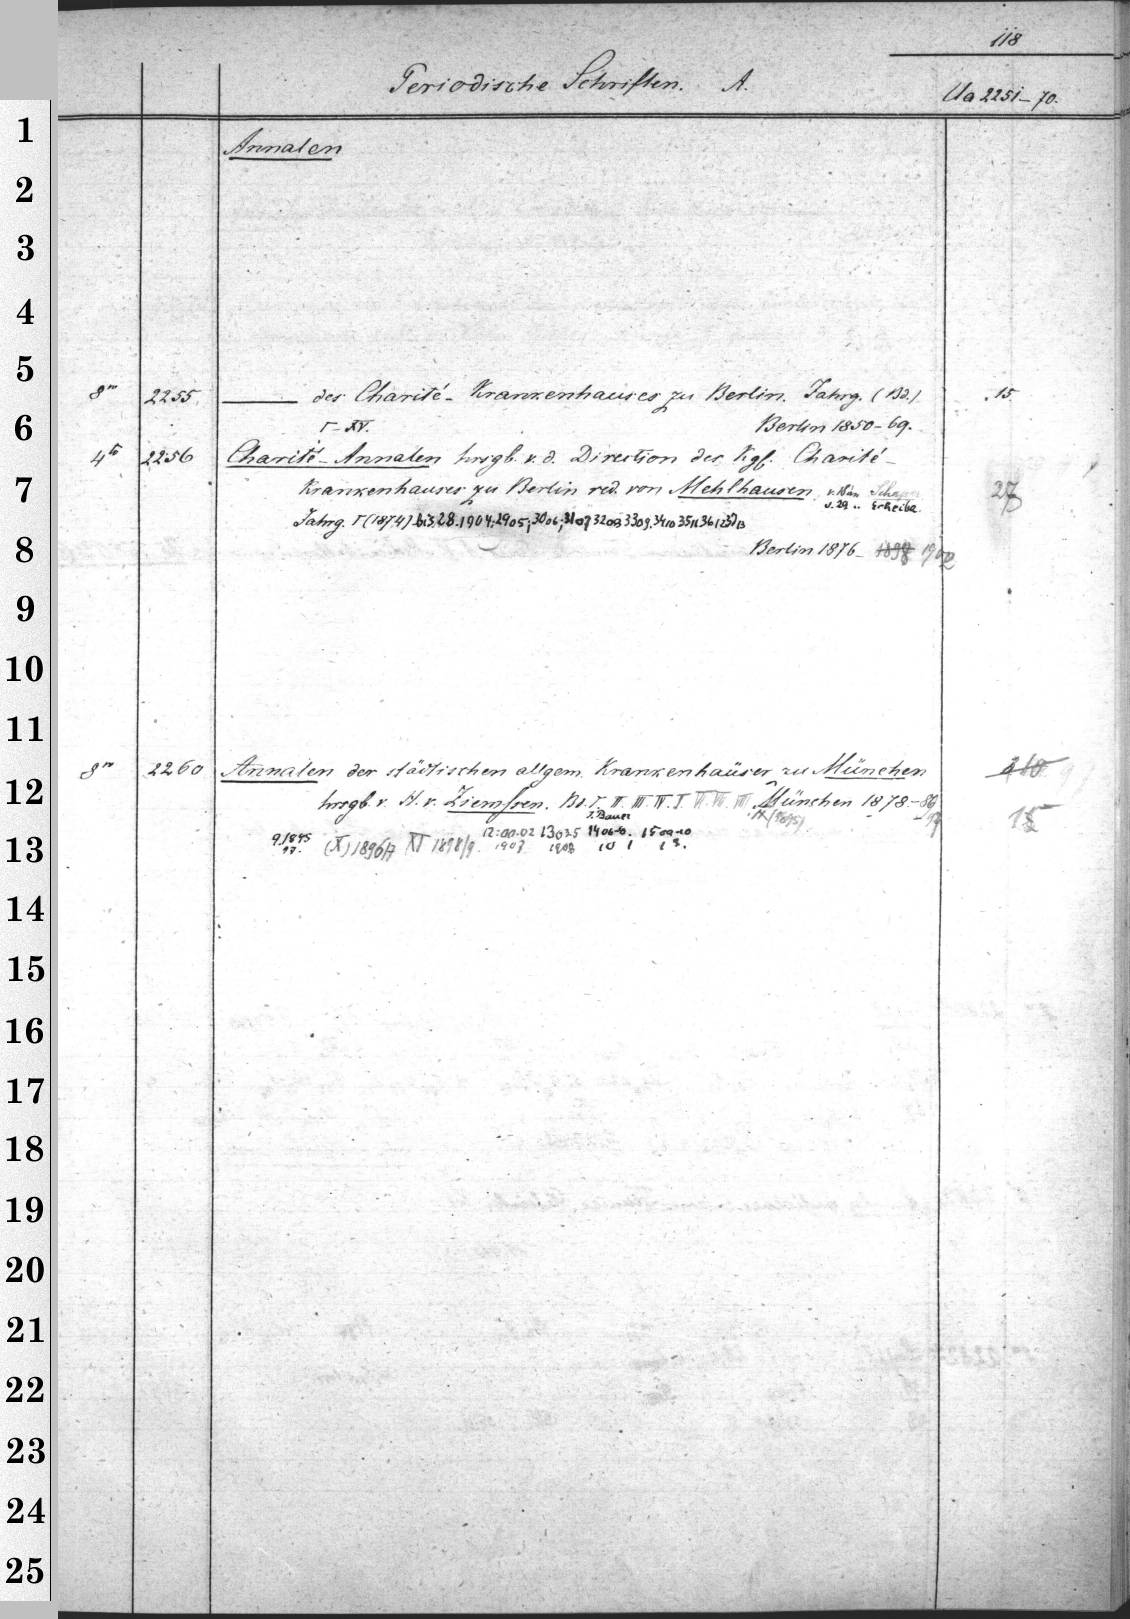 118
Periodische Schriften. A.
Ua 2251-70.
1
Annalen
2
3
4
5
8° 2255 ——— des Charité-Krankenhauses zu Berlin. Jahrg. (Bd.) 15
6
I-XV. Berlin 1850-69.
4to 2256 Charité-Annalen hrsgb. v. d. Direction des Kgl. Charité-
7
Krankenhauses zu Berlin red. von Mehlhausen, v. 18 an Schaper 27
v. 29 .. Scheibe
Jahrg. I (1874) bis 28.1904; 2905; 3006; 3107 3208 3309, 3410 3511 3612 37 13
8
Berlin 1876- 1898 1902
9
10
11
8° 2260 Annalen der städtischen allgem. Krankenhäuser zu München 210
12
hrsgb. v. H. v. Ziemssen. Bd. I. II. III. IV. V. VI. VII. VIII München 1878-86 15
J. Bauer IX (1895) 97
9,1895 (X) 1896/7 XI 1898/9 12:00-02 13 03-5 14 06-8. 15 09-10
97. 1907 1908 10 1 13.
13
14
15
16
17
18
19
20
21
22
23
24
25